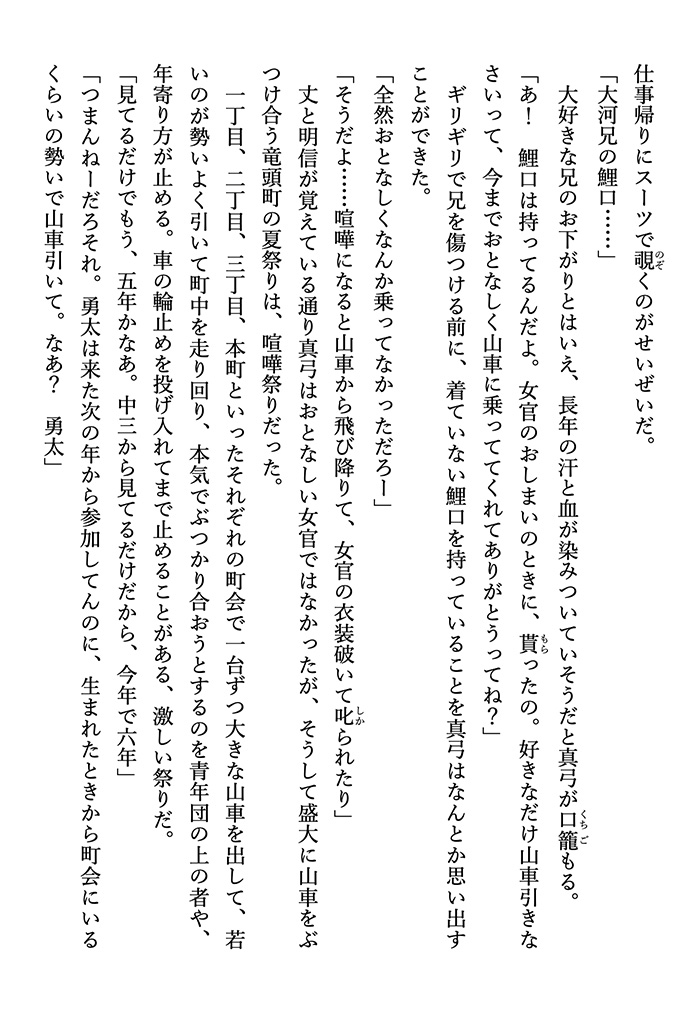 仕事帰りにスーツで覗くのがせいぜいだ。
「大河兄の鯉口……」
大好きな兄のお下がりとはいえ、長年の汗と血が染みついていそうだと真弓が口籠もる。
「あ！　鯉口は持ってるんだよ。女官のおしまいのときに、貰ったの。好きなだけ山車引きな
さいって、今までおとなしく山車に乗っててくれてありがとうってね？」
ギリギリで兄を傷つける前に、着ていない鯉口を持っていることを真弓はなんとか思い出す
ことができた。
「全然おとなしくなんか乗ってなかっただろー」
「そうだよ……喧嘩になると山車から飛び降りて、女官の衣装破いて叱られたり」
丈と明信が覚えている通り真弓はおとなしい女官ではなかったが、そうして盛大に山車をぶ
つけ合う竜頭町の夏祭りは、喧嘩祭りだった。
一丁目、二丁目、三丁目、本町といったそれぞれの町会で一台ずつ大きな山車を出して、若
いのが勢いよく引いて町中を走り回り、本気でぶつかり合おうとするのを青年団の上の者や、
年寄り方が止める。車の輪止めを投げ入れてまで止めることがある、激しい祭りだ。
「見てるだけでもう、五年かなあ。中三から見てるだけだから、今年で六年」
「つまんねーだろそれ。勇太は来た次の年から参加してんのに、生まれたときから町会にいる
くらいの勢いで山車引いて。なあ？　勇太」